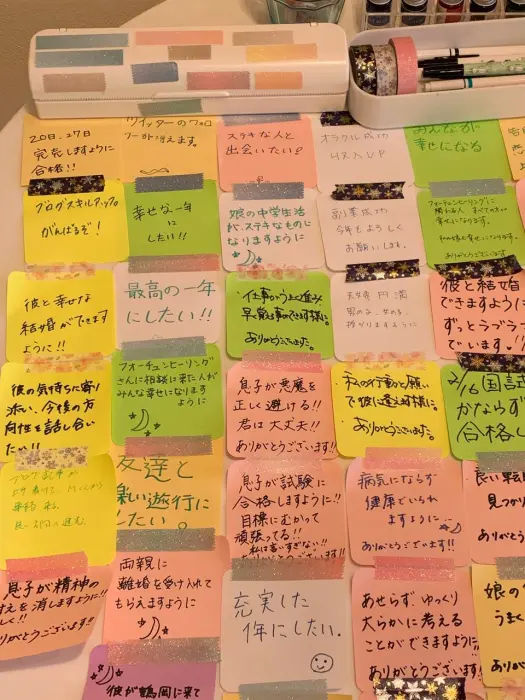 20日、27日
完売しますように
合格!!
ツイッターのフォロ
ワーが増えます。
ステキな人と
出会いたい!
オラクル成功
みんなが
幸せになる
ブログスキルアップ
がんばるぞ!
幸せな一年
に
したい!!
娘の中学生活
が、ステキなものに
なりますように
副業成功
今年もよろしく
お願いします。
フォーチュンヒーリングに
関わる人 すべての方が
幸せになります。
ありがとうございます
彼と幸せな
結婚ができます
ように!!
最高の一年
にしたい!!
仕事がうまく進み
ありがとうございます。
夫婦円満
授かりますように
彼と結婚
できますように
ずっとラブラブ
でいます!!
彼の気持ちに寄り
添い、今後の方
向性を話し合い
たい!!
フォーチュンヒーリング
さんに相談に来た人が
みんな幸せになります
ように
息子が悪魔を
正しく避ける!!
君は大丈夫!!
ありがとうございます!!
私の行動と願い
で彼に逢えます様に。
ありがとうございます。
2/16 国試
かならず
合格し
友達と
楽しい旅行に
したい。
息子が試験に
合格しますように!!
目標にむかって
頑張ってる!!
私は言いすぎない!!
ありがとうございます!!
病気にならず
健康でいられ
ますように
ありがとうございます!!
良い転
見つか
ありがと
息子が精神の
を消しますように!!
りがとうございます!!
両親に
離婚を受け入れて
もらえますように
充実した
年にしたい.
あせらず、ゆっくり
大らかに考える
ことができますように
ありがとうございます!!
娘の
うまく
あり
彼が鶴岡に来て